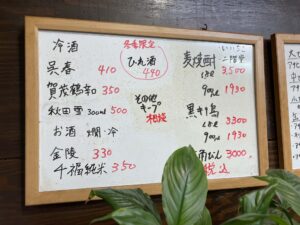 冷酒
呉春 410
賀茂鶴 350
秋田雪 300ml 500
お酒 燗・冷
金陵 330
千福純米 350
冬季限定
ひれ酒
490
その他
キープ
相談
いいちこ
麦焼酎 二階堂
1.8ℓ 3,500
900ml 1930
黒キリ島
1.8ℓ 3300
900ml 1930
角びん 3000
税込